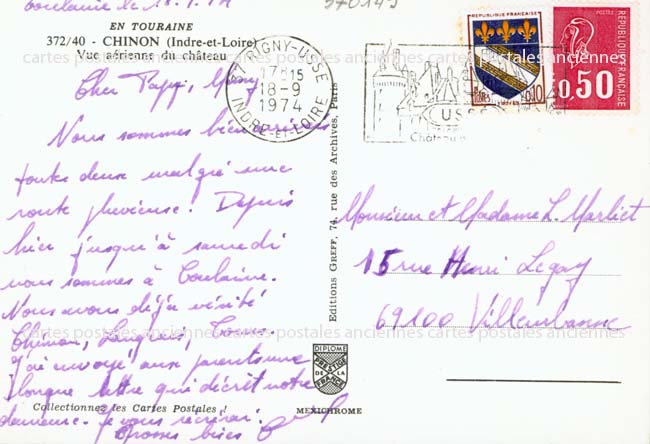 Coulaine le 18.9.74
EN TOURAINE
372/40 - CHINON (Indre-et-Loire)
Vue aérienne du château
Cher Papy, Mamy
Nous sommes bien arrivées
toutes deux malgré une
route pluvieuse. Depuis
hier jusqu'à samedi
nous sommes à Coulaine.
Nous avons déjà visité
Chinon, Langeais, Tours.
J'ai envoyé aux parents une
longue lettre qui décrit notre
demeure. Je vous récrirai.
Grosses bises
Collectionnez les Cartes Postales !
Editions GREFF, 74, rue des Archives, Paris
DIPLOME
PRESTIGE
DE LA
FRANCE
MEXICHROME
RIGNY-USSE
17H15
18-9
1974
INDRE-ET-LOIRE
USSE
Château
REPUBLIQUE FRANÇAISE
TROYES
0,10
POSTES
REPUBLIQUE FRANÇAISE
0,50
Monsieur et Madame L. Marliet
15 rue Henri Legay
69100 Villeurbanne
cartes postales anciennes cartes postales anciennes cartes postales anciennes